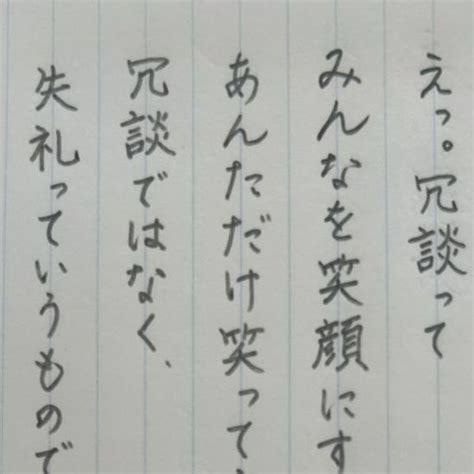 えっ。冗談って
みんなを笑顔にす
あんただけ笑って
冗談ではなく、
失礼っていうもので